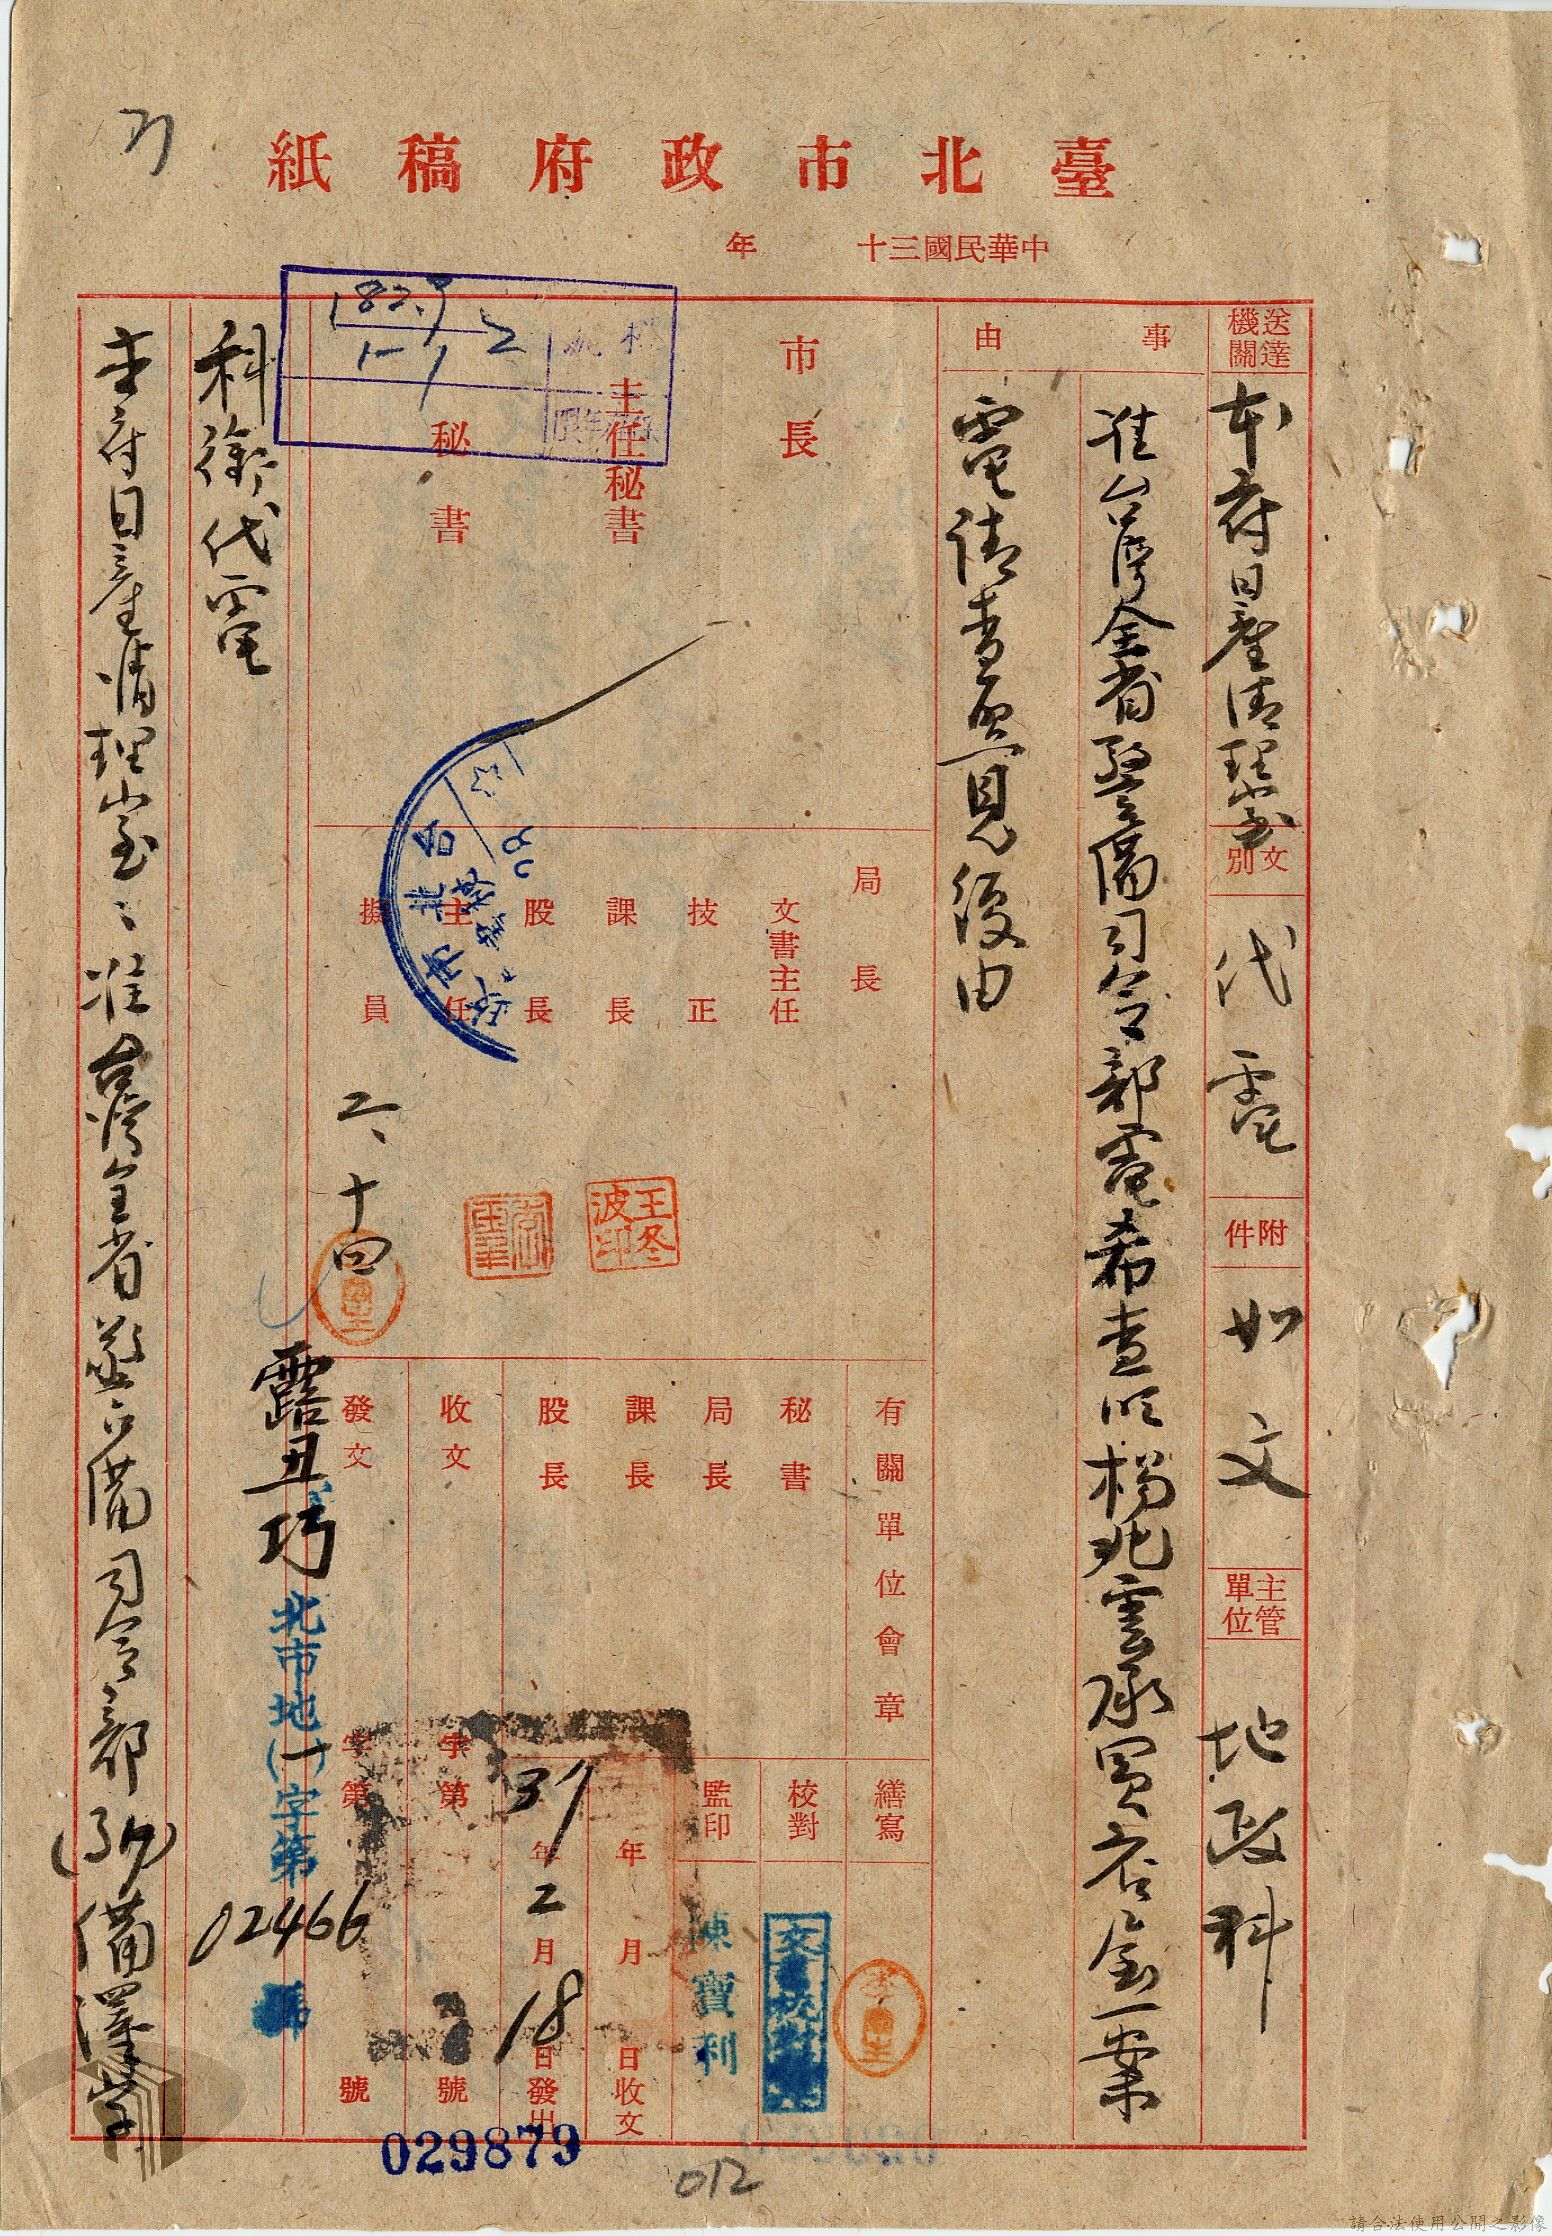 臺北市政府稿紙
中華民國三十　年
送達機關
本府日產清理室
文別
代電
附件
如文
主管單位
地政科
事由
准台灣全省警備司令部電希查明楊兆雲承買店金一案
電請查照見復由
市長
主任秘書
秘書
檔號
1829
1-1
2
局長
文書主任
技正
課長
股長
主任
擬員
台北市政
二、十四
王冬波印
有關單位會章
秘書
局長
課長
股長
收文
字第
號
發文
字第
號
繕寫
校對
監印
陳寶利
文書校對
年　月　日收文
37年2月18日發出
露丑巧
北市地(一)字第
02466
號
科銜代電
本府日產清理室：准台灣全省警備司令部(37)備澤字
029879
012
請合法使用公開之影像